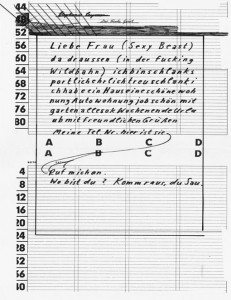 44
48
52
56 Liebe Frau (Sexy Beast)
60 da draussen (in der fucking
64 Wildbahn) ichbinschlanks
68 portlichehrlichtreuschlanki
72 chhabeeinHauseineschönewoh
76 nungAutowohnungjobschönmit
80 gartenallesoxWochenendeUrla
ubmitfreundlichenGrüßen
Meine Tel. Nr. hier ist sie
A B C D
A B C D
4 Ruf mich an.
8 Wo bist du? Komm raus, du Sau.
12
16
20
24
28
32
36
40